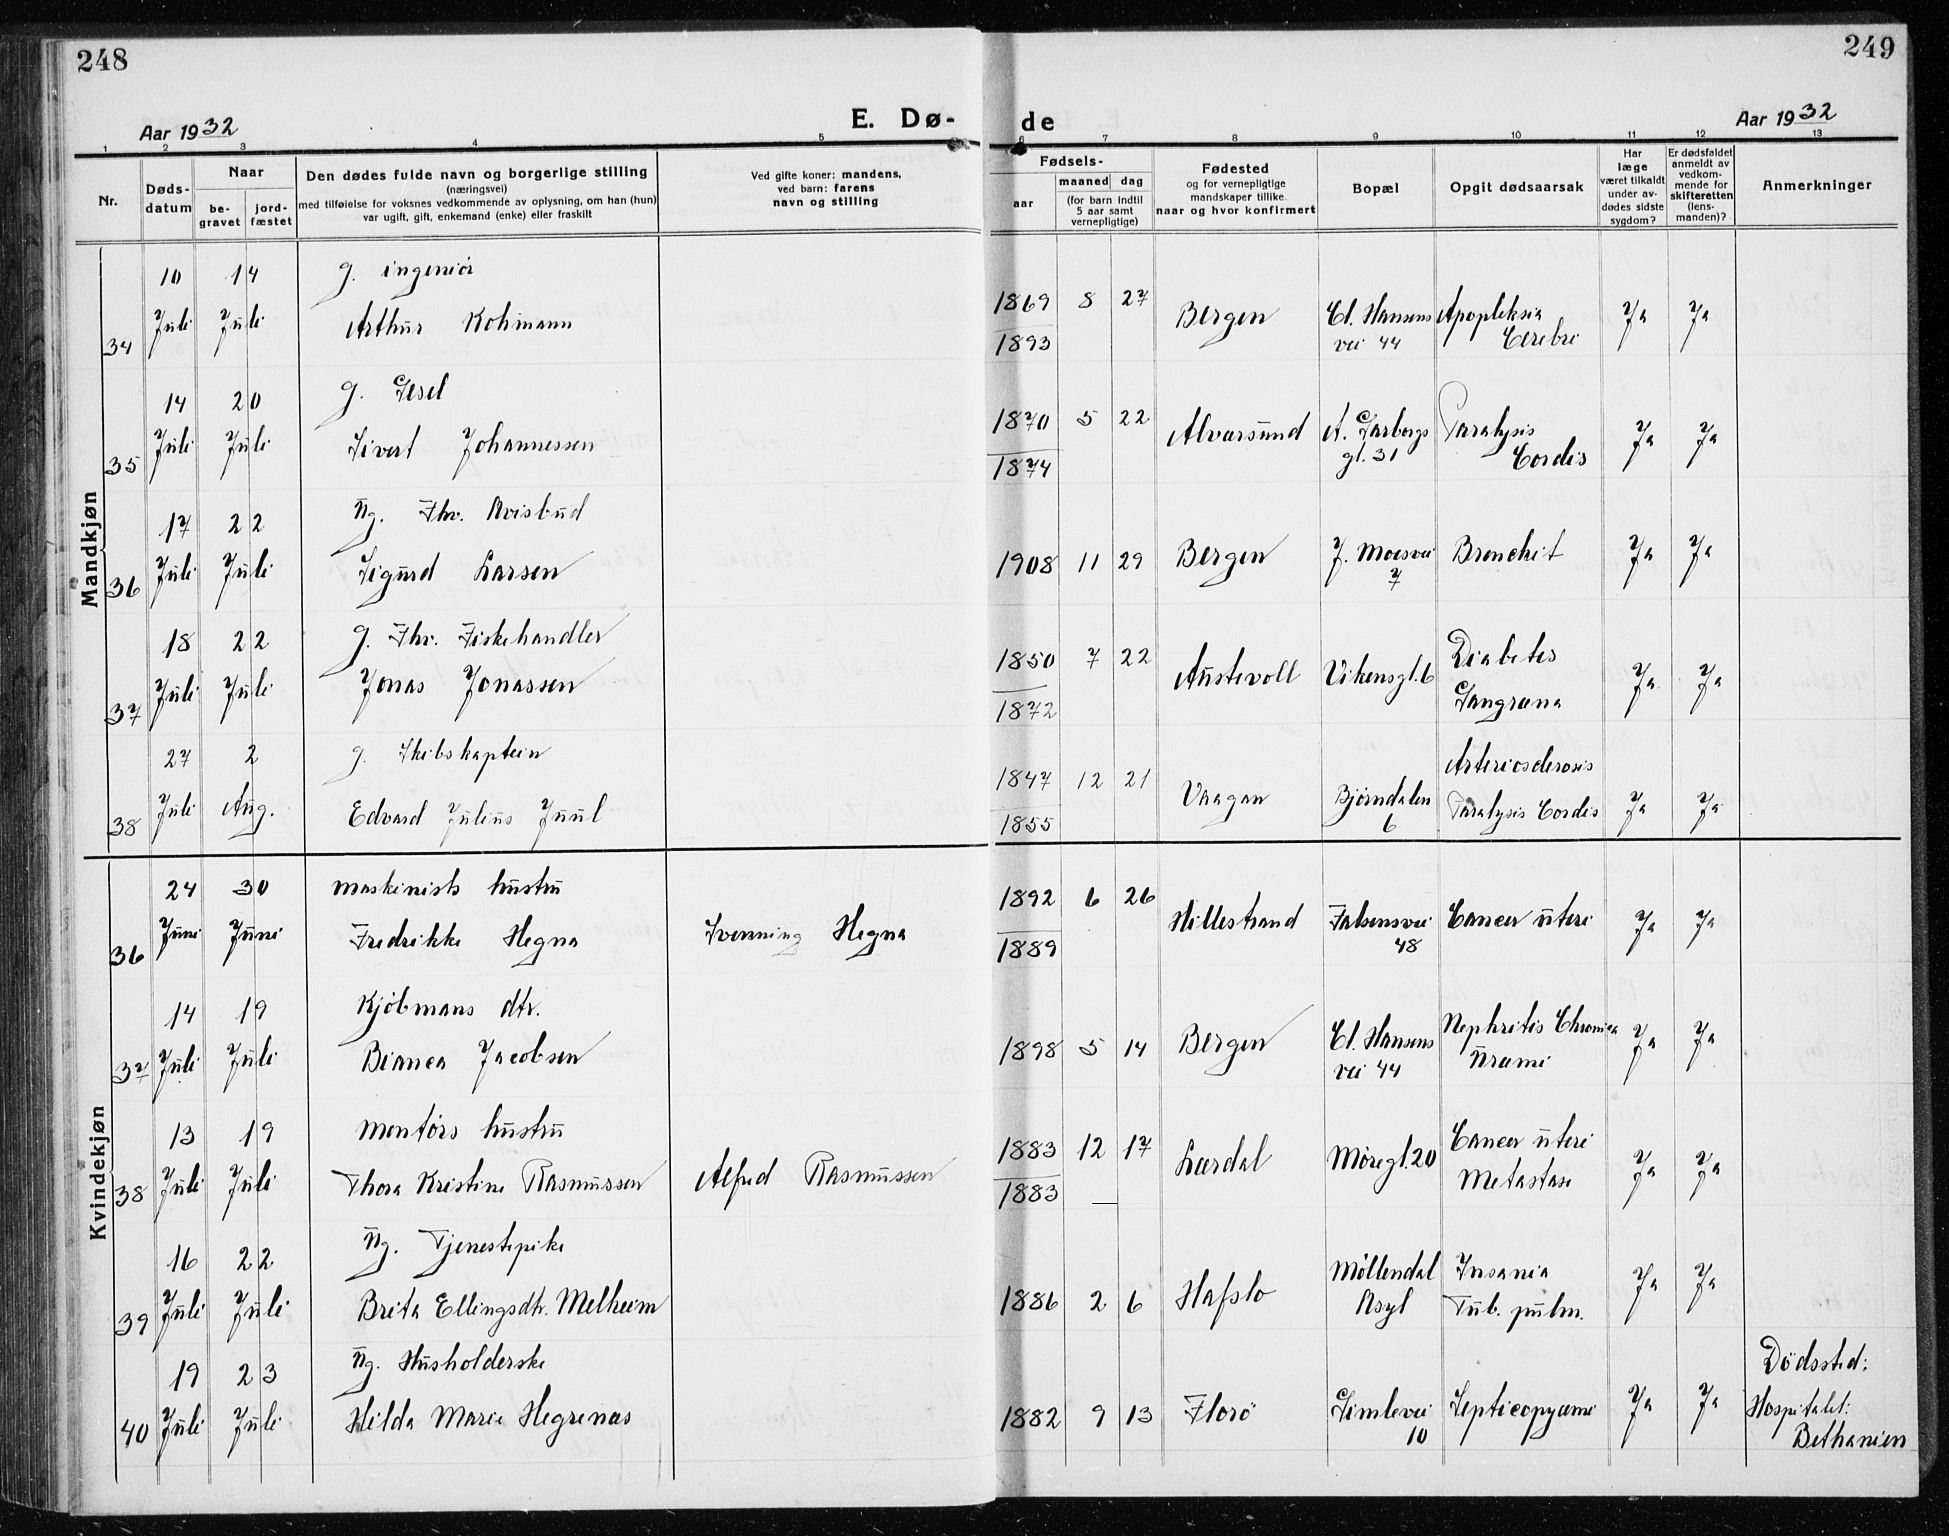 248
249
Aar 1932
E. Dø-
de
Aar 1932
1 2 3 4 5 6 7 8 9 10 11 12 13
Nr.
Døds-
datum
Naar
be-
gravet
jord-
fæstet
Den dødes fulde navn og borgerlige stilling
(næringsvei)
med tilføielse for voksnes vedkommende av oplysning, om han (hun)
var ugift, gift, enkemand (enke) eller fraskilt
Ved gifte koner: mandens,
ved barn: farens
navn og stilling
Fødsels-
aar
maaned dag
(for barn indtil
5 aar samt
vernepligtige)
Fødested
og for vernepligtige
mandskaper tillike
naar og hvor konfirmert
Bopæl
Opgit dødsaarsak
Har
læge
været tilkaldt
under av-
dødes sidste
sygdom?
Er dødsfaldet
anmeldt av
vedkom-
mende for
skifteretten
(lens-
manden)?
Anmerkninger
Mandkjøn
10 14 g. ingeniør
34 Juli Juli Arthur Kohmann
1869 8 27 Bergen Cl. Hansens Apopleksia Ja Ja
1893 vei 44 Cerebri
14 20 g. Gsel
35 Juli Juli Sivert Johannessen
1870 5 22 Alvarsund A. Garborgs Paralysis Ja Ja
1874 gt. 31 Cordis
17 22 Ug. Fhv. Avisbud
36 Juli Juli Sigurd Larsen
1908 11 29 Bergen J. Moesvei Bronchit Ja Ja
7
18 22 g. Fhv. Fiskehandler
37 Juli Juli Jonas Jonassen
1850 7 22 Austevoll Vikensgt. 6 Diabetes Ja Ja
1872 Gangræna
27 2 g. Skibskaptein
38 Juli Aug. Edvard Julius Juul
1847 12 21 Vaagan Bjørndalen Arteriosclerosis
1855 6 Paralysis Cordis Ja Ja
Kvindekjøn
24 30 maskinists hustru
36 Juni Juni Fredrikke Hegna Svenning Hegna
1892 6 26 Hillestrand Falsensvei Cancer uteri Ja Ja
1889 48
14 19 Kjøbmans dtr.
37 Juli Juli Bianca Jacobsen
1898 5 14 Bergen Cl. Hansens Nephritis Chronica Ja Ja
vei 44 Uræmi
13 19 Montørs hustru
38 Juli Juli Thora Kristine Rasmussen Alfred Rasmussen
1883 12 17 Lærdal Møregt. 20 Cancer uteri Ja Ja
1883 — Metastase
16 22 Ug. Tjenestepike
39 Juli Juli Brita Ellingsdtr. Melheim
1886 2 6 Hafslo Møllendal Insania Ja Ja
Asyl Tub. pulm.
19 23 Ug. Husholderske
40 Juli Juli Hilda Marie Hegrenas
1882 9 13 Florø Simlevei Septicopyæmi Ja Ja
10
Dödssted:
Hospitalet:
Bethanien